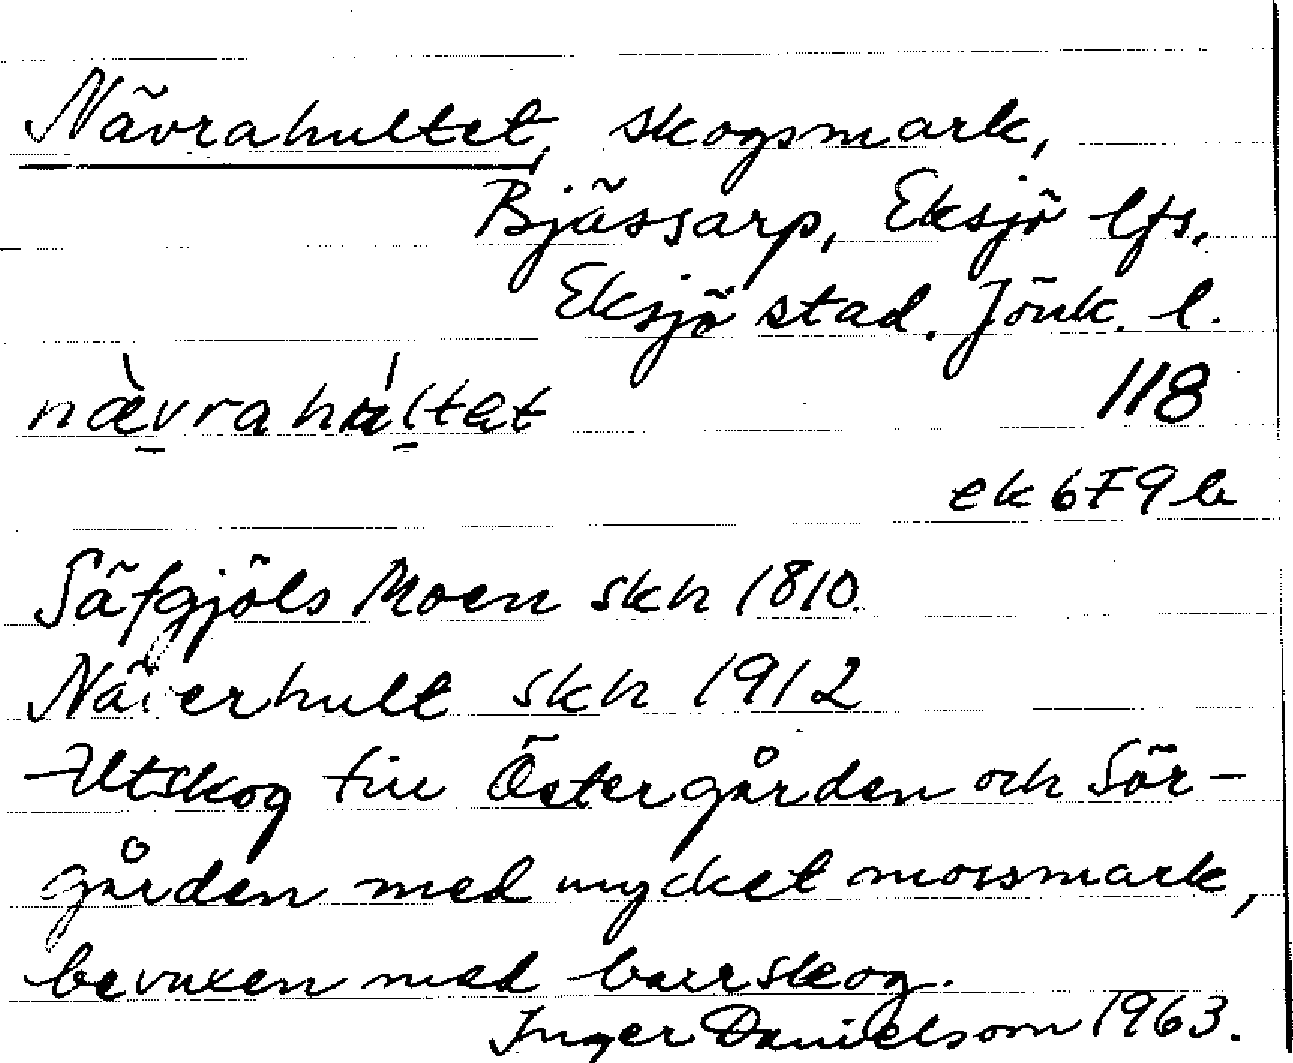 Nävrahultet, skogsmark,
Bjässarp, Eksjö lfs.
Eksjö stad. Jönk. l.
nævrahultet 118
ek 6F9b
Säfgjöls Moen skh 1810
Näverhult skh 1912
Utskog till Östergården och Sör-
gården med mycket mossmark,
bevuxen med barrskog.
Inger Danielsson 1963.